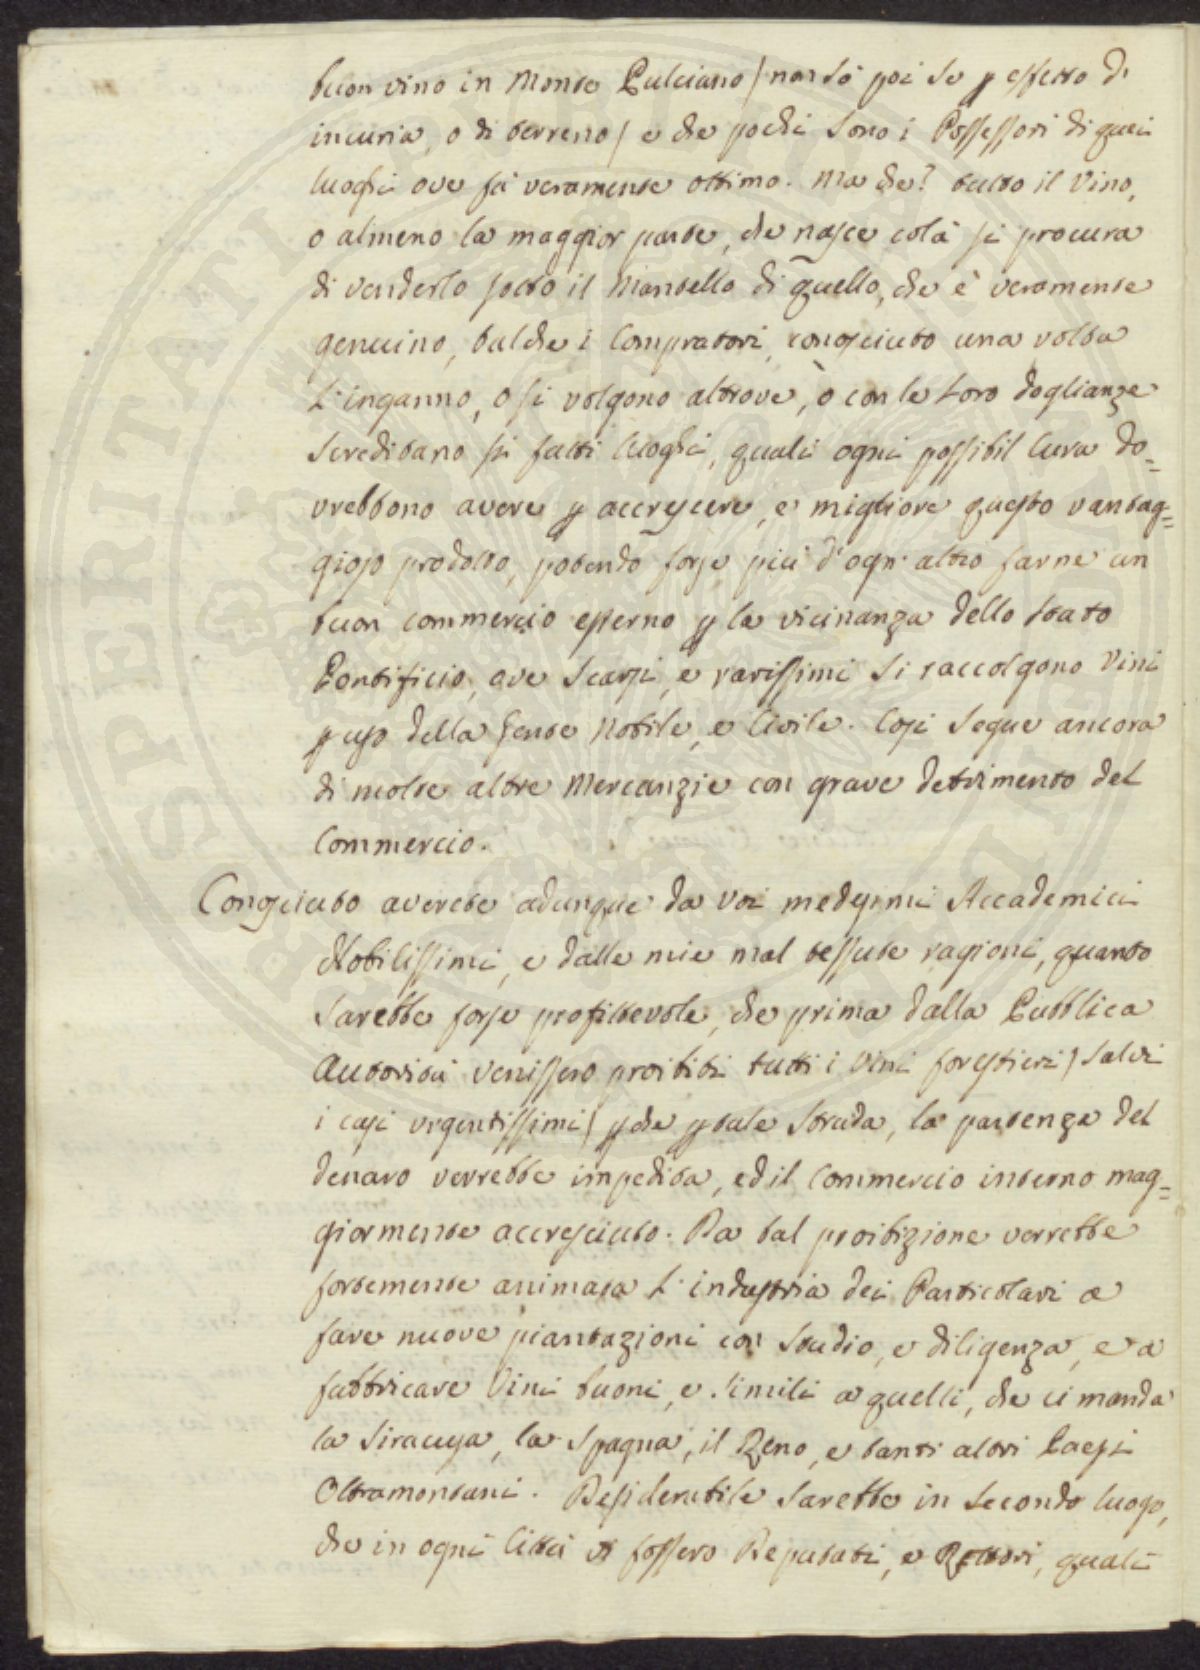 buon vino in Monte Pulciano / non sò poi se p effetto di
incuria, o di terreno / e che pochi sono i Possessori di quei
luoghi ove fà veramente ottimo. Ma che? tutto il Vino,
o almeno la maggior parte, che nasce colà si procura
di venderlo sotto il Mantello di quello, che è veramente
genuino, talche i Compratori, conosciuto una volta
L'inganno, o si volgono altrove, ò con le Loro doglianze
screditano sì fatti luoghi, quali ogni possibil Cura do=
vrebbono avere p accrescere, e migliore questo vantag=
gioso prodotto, potendo forse più d'ogn' altro farne un
buon commercio esterno p la vicinanza dello stato
Pontificio, ove scarsi, e rarissimi si raccolgono Vini
p uso della Gente Nobile, e Civile. Così segue ancora
di molte altre Mercanzie con grave detrimento del
Commercio.
Conosciuto averete adunque da voi medesimi Accademici
Nobilissimi, e dalle mie mal tessute ragioni, quanto
sarebbe forse profittevole, che prima dalla Pubblica
Autorità venissero proibiti tutti i Vini forestieri / salvi
i casi urgentissimi / pche p tale strada, la partenza del
denaro verrebbe impedita, ed il Commercio interno mag=
giormente accresciuto. Da tal proibizione verrebbe
fortemente animata L'industria dei Particolari a
fare nuove piantazioni con studio, e diligenza, e a
fabbricare Vini buoni, e simili a quelli, che ci manda
la Siracusa, la Spagna, il Reno, e tanti altri Paesi
Oltramontani. Desiderabile sarebbe in secondo luogo,
che in ogni Città vi fossero Deputati, e Rettori, quali
PROSPERITATI PUBLICAE